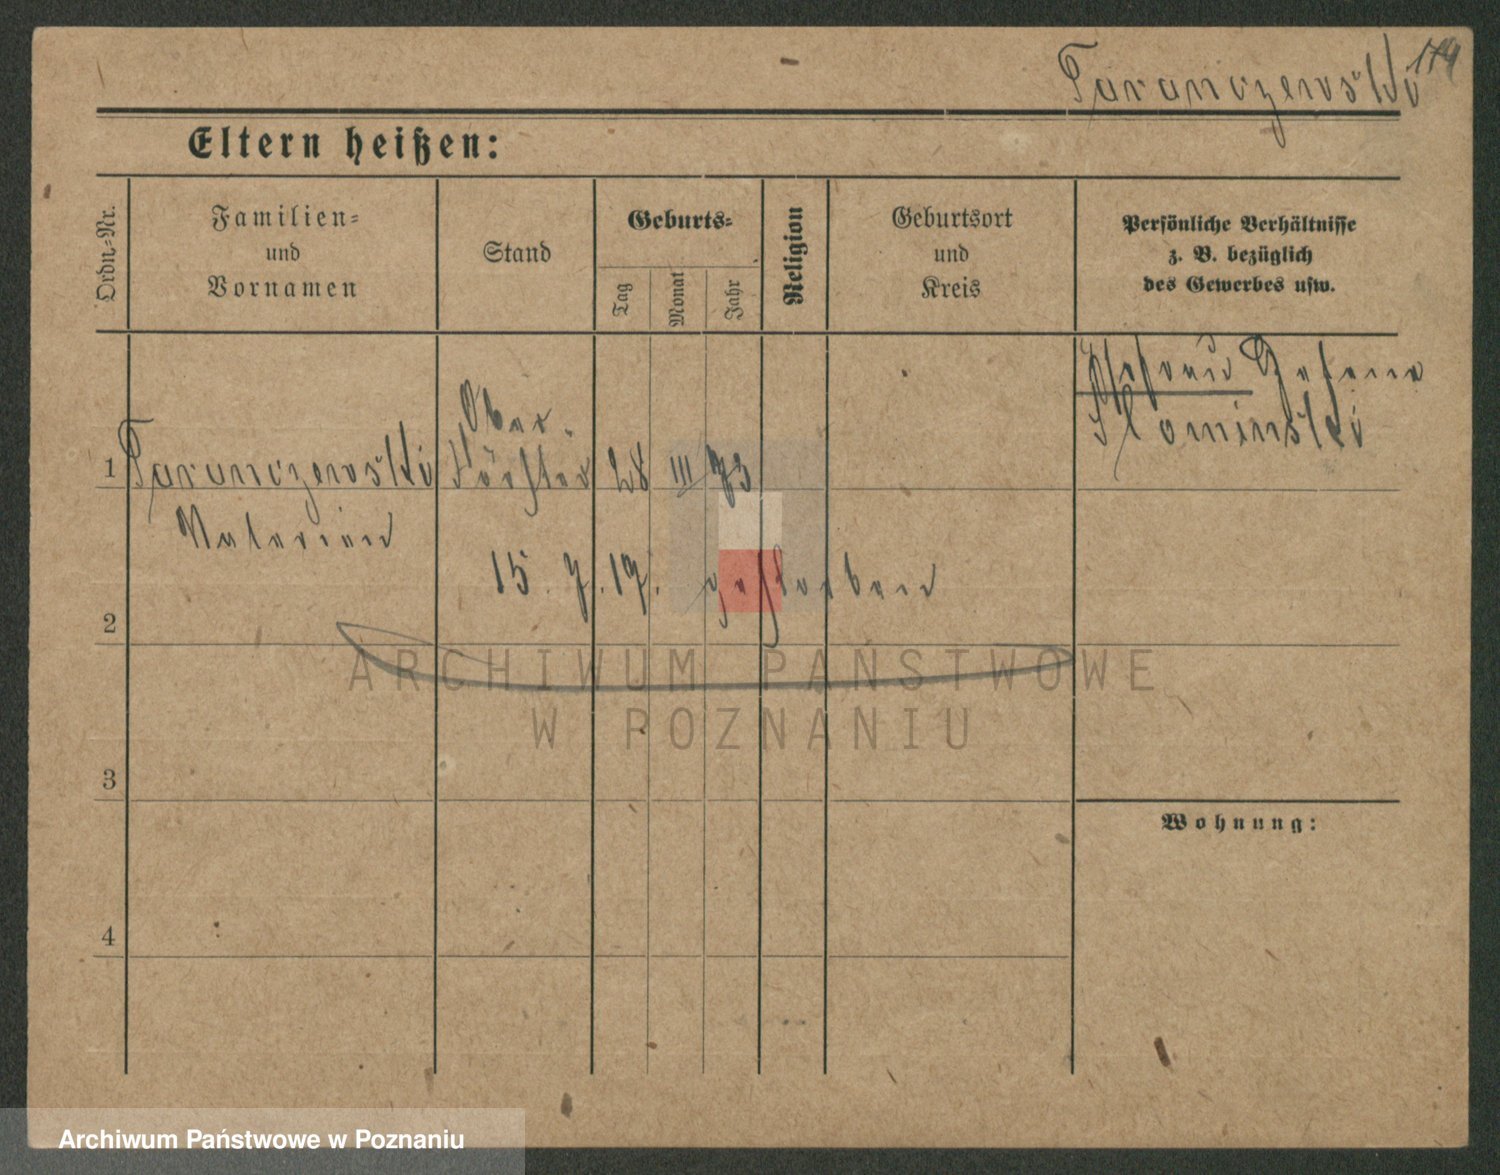 174
Taranczewski
Eltern heißen:
Ordn.-Nr.
Familien-
und
Vornamen
Stand
Geburts-
Tag
Monat
Jahr
Religion
Geburtsort
und
Kreis
Persönliche Verhältnisse
z. B. bezüglich
des Gewerbes usw.
Ehefrau Helene
Slominski
Ober-
1 Taranczewski Förster 28 III 73
Valerian
15. 7. 17. gestorben
2
3
Wohnung:
4
ARCHIWUM PAŃSTWOWE
W POZNANIU
Archiwum Państwowe w Poznaniu